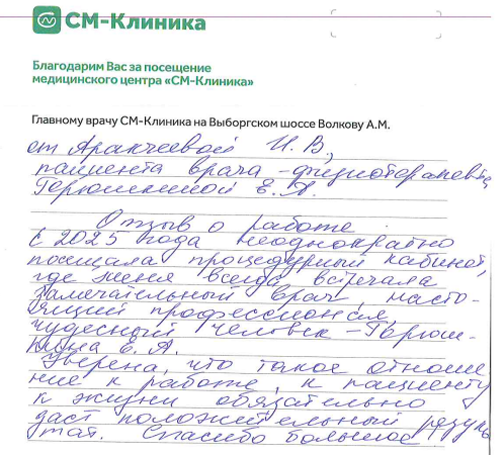 СМ-Клиника
Благодарим Вас за посещение
медицинского центра «СМ-Клиника»
Главному врачу СМ-Клиника на Выборгском шоссе Волкову А.М.
от Аракчеевой И. В,
пациента врача-физиотерапевта
Герюшкиной Е. А.
Отзыв о работе
С 2025 года неоднократно
посещала процедурный кабинет,
где меня всегда встречала
замечательный врач, насто-
ящий профессионал,
чудесный человек - Герюш-
кина Е. А.
Уверена, что такое отноше
ние к работе, к пациенту
к жизни обязательно
даст положительный резуль
тат. Спасибо большое